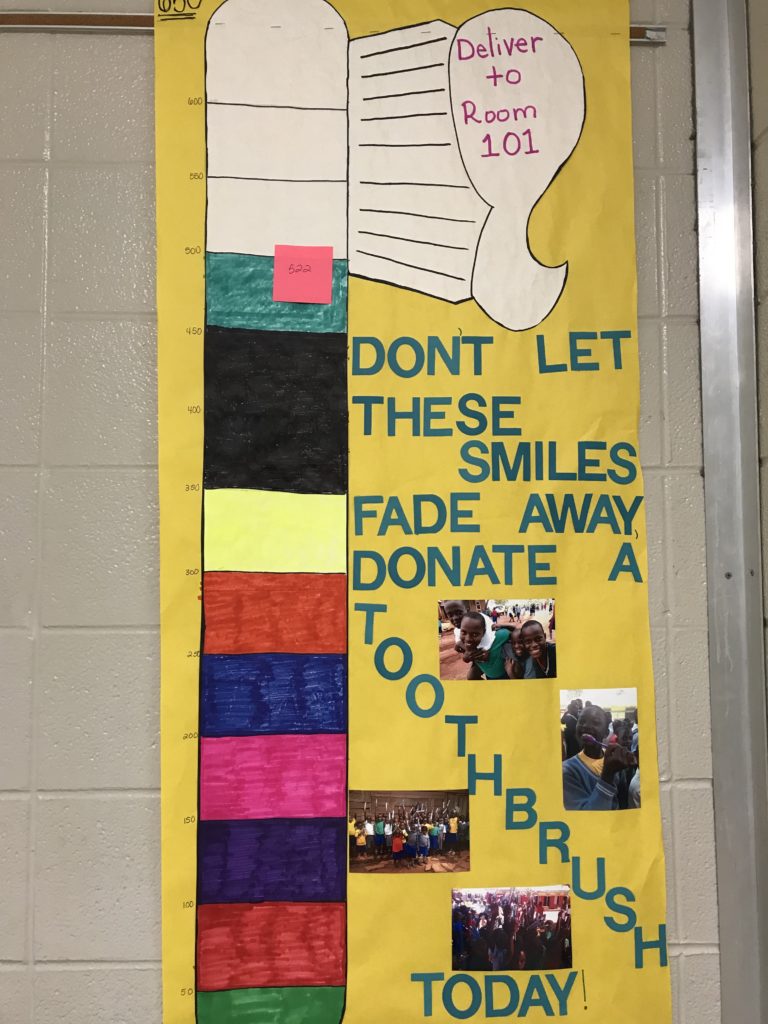 650
Deliver
to
Room
101
600
550
500
522
450
400
350
300
250
200
150
100
50
DON'T LET
THESE
SMILES
FADE AWAY,
DONATE A
TOOTHBRUSH
TODAY!